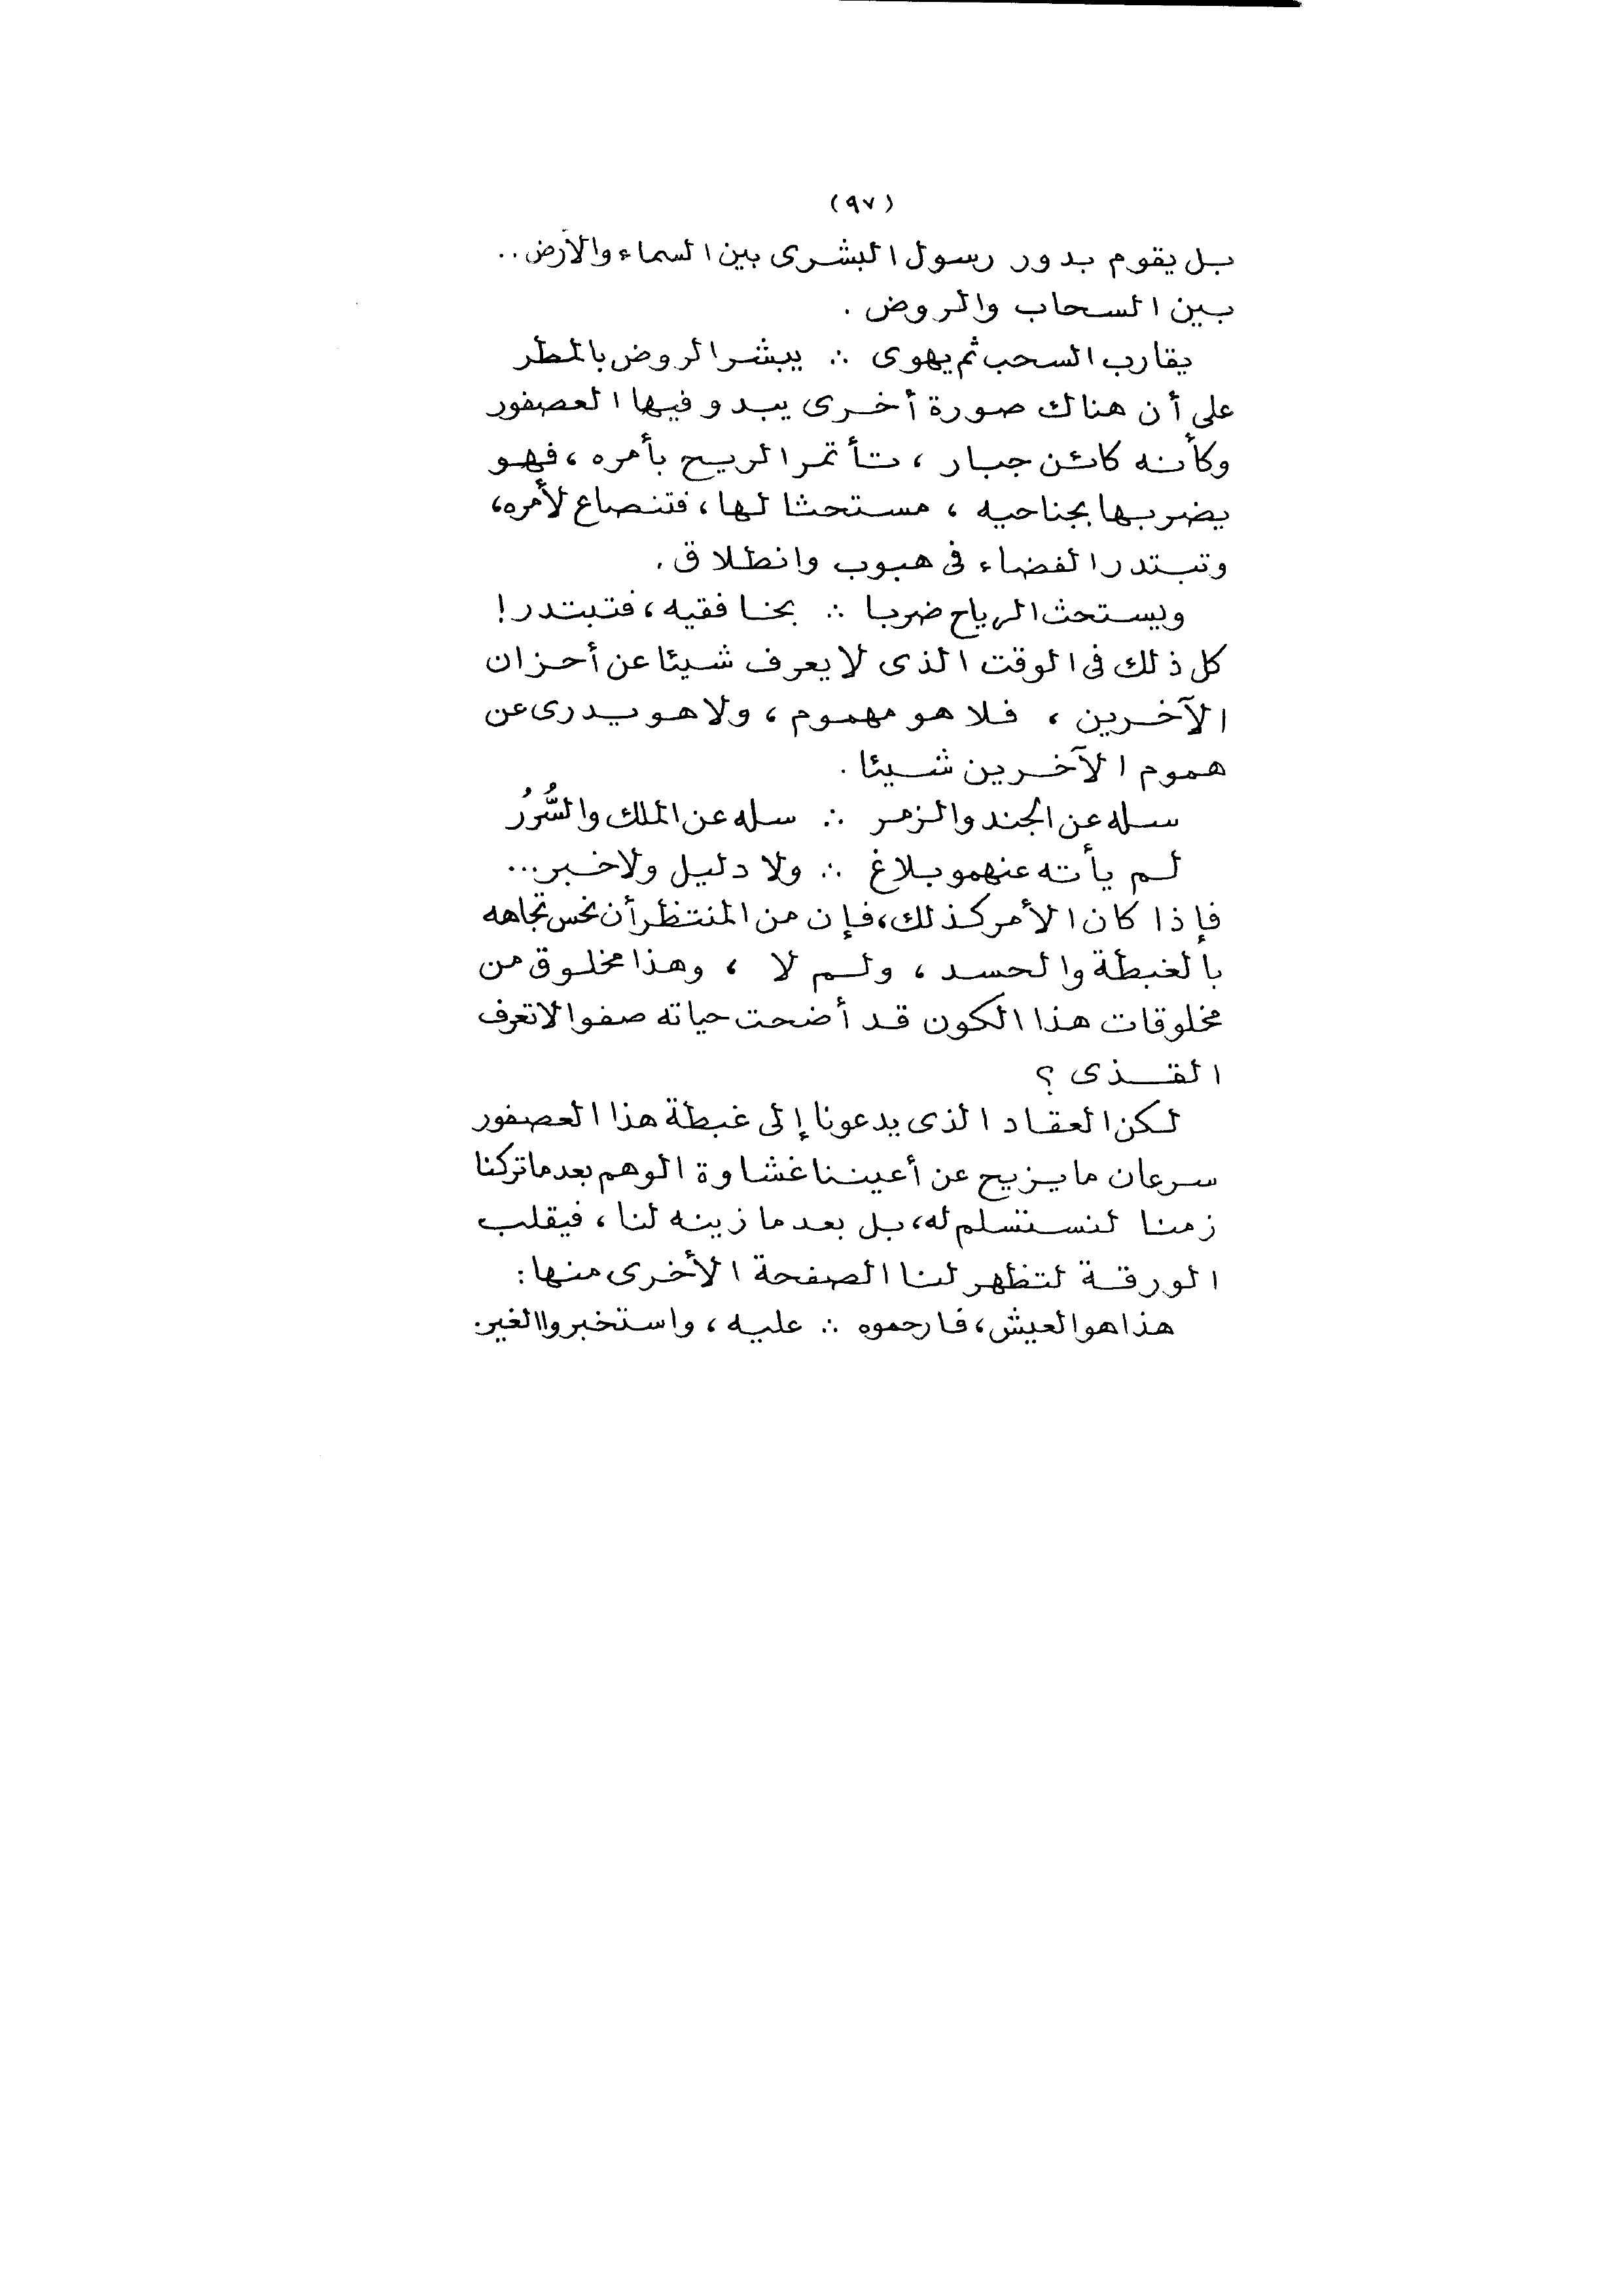 (٩٧)
بل يقوم بدور رسول البشرى بين السماء والأرض..
بين السحاب والروض .
يقارب السحب ثم يهوى ∴ يبشر الروض بالمطر
على أن هناك صورة أخرى يبدو فيها العصفور
وكأنه كائن جبار ، تأتمر الريح بأمره ، فهو
يضربها بجناحيه ، مستحثا لها ، فتنصاع لأمره،
وتبتدر الفضاء فى هبوب وانطلاق .
ويستحث الرياح ضربا ∴ بخافقيه ، فتبتدر !
كل ذلك فى الوقت الذى لا يعرف شيئا عن أحزان
الآخرين ، فلا هو مهموم ، ولا هو يدرى عن
هموم الآخرين شيئا .
سله عن الجند والزمر ∴ سله عن الملك والسُّرُرُ
لم يأته عنهمو بلاغ ∴ ولا دليل ولا خبر ...
فإذا كان الأمر كذلك، فإن من المنتظر أن نحس تجاهه
بالغبطة والحسد ، ولم لا ، وهذا مخلوق من
مخلوقات هذا الكون قد أضحت حياته صفوا لا تعرف
القذى ؟
لكن العقاد الذى يدعونا إلى غبطة هذا العصفور
سرعان ما يزيح عن أعيننا غشاوة الوهم بعدما تركنا
زمنا لنستسلم له، بل بعد ما زينه لنا ، فيقلب
الورقة لتظهر لنا الصفحة الأخرى منها :
هذا هو العيش، فارحموه ∴ عليه ، واستخبروا الغير.